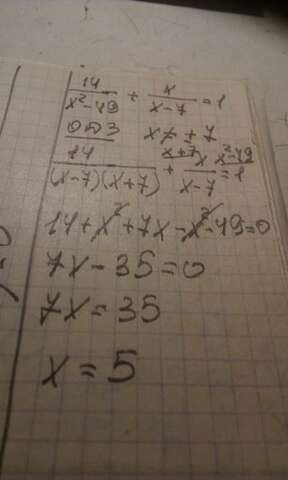 14/(x²-49) + x/(x-7) = 1
ОДЗ x≠±7
14/((x-7)(x+7)) + x+7 x/(x-7) = x²-49 1
14+x²+7x-x²-49=0
7x-35=0
7x=35
x=5